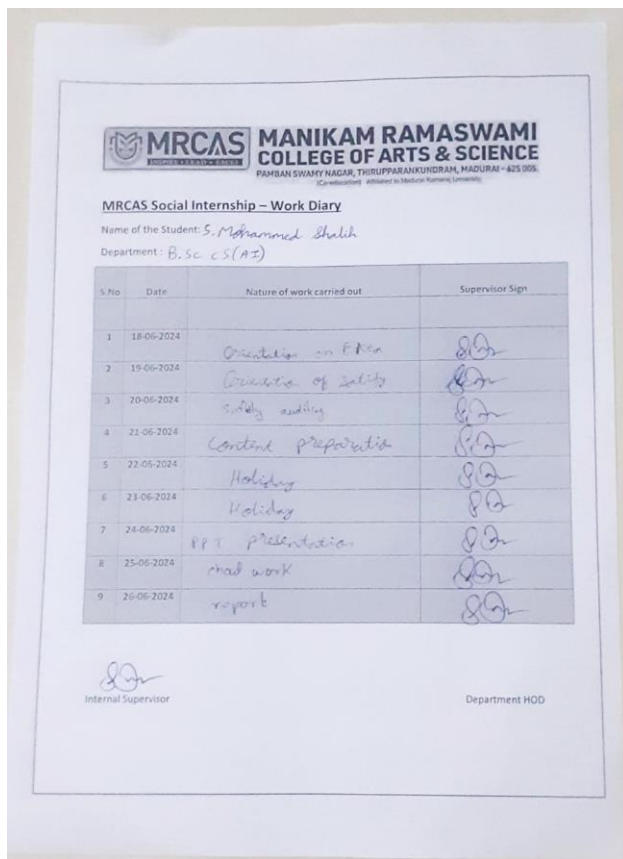 MRCAS
INSPIRE • LEAD • EXCEL
MANIKAM RAMASWAMI
COLLEGE OF ARTS & SCIENCE
PAMBAN SWAMY NAGAR, THIRUPPARANKUNDRAM, MADURAI - 625 005.
(Co-education) Affiliated to Madurai Kamaraj University
MRCAS Social Internship – Work Diary
Name of the Student: S. Mohammed Shalih
Department : B.Sc CS(AI)
S.No Date Nature of work carried out Supervisor Sign
1 18-06-2024 Orientation on
2 19-06-2024 of
3 20-06-2024 Safety auditing
4 21-06-2024 Content preparatio
5 22-06-2024 Holiday
6 23-06-2024 Holiday
7 24-06-2024 PPT presentation
8 25-06-2024 work
9 26-06-2024 report
Internal Supervisor Department HOD